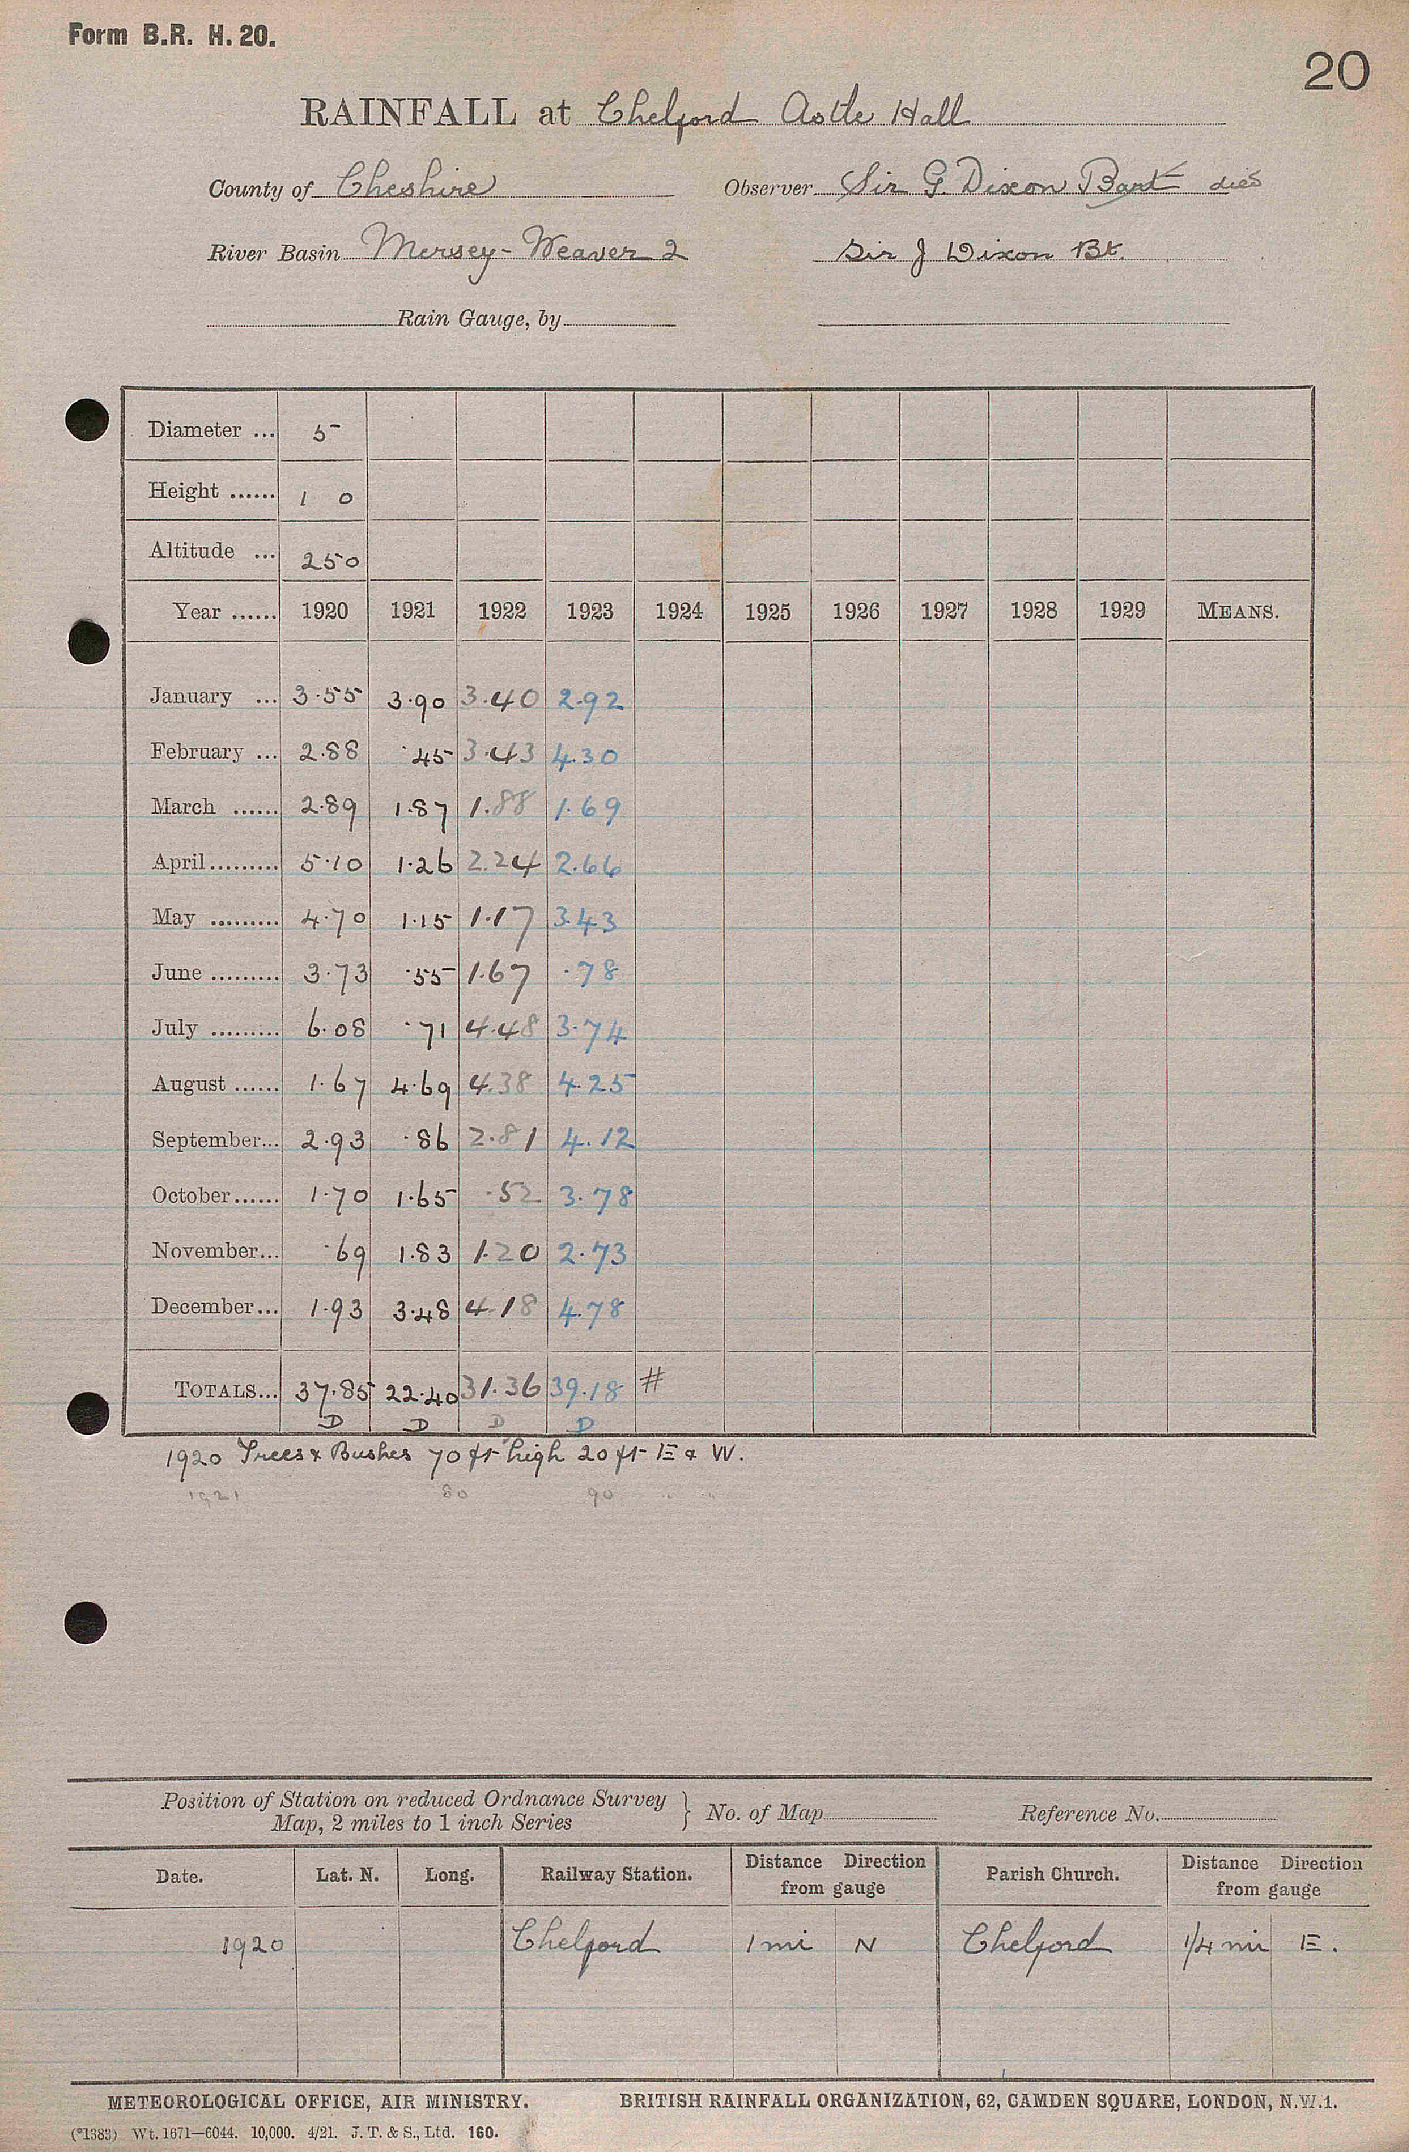 Form B.R. H. 20.
20
RAINFALL at Chelford Astle Hall
County of Cheshire Observer Sir G. Dixon Bart died
River Basin Mersey - Weaver 2 Sir J Dixon Bt.
Rain Gauge, by
Diameter ... 5
Height ...... 1 0
Altitude ... 250
Year ...... 1920 1921 1922 1923 1924 1925 1926 1927 1928 1929 MEANS.
January ... 3.55 3.90 3.40 2.92
February ... 2.88 .45 3.43 4.30
March ...... 2.89 1.87 1.88 1.69
April ......... 5.10 1.26 2.24 2.66
May ......... 4.70 1.15 1.17 3.43
June ......... 3.73 .55 1.67 .78
July ......... 6.08 .71 4.48 3.74
August ...... 1.67 4.69 4.38 4.25
September... 2.93 .86 2.81 4.12
October...... 1.70 1.65 .52 3.78
November... .69 1.83 1.20 2.73
December... 1.93 3.48 4.18 4.78
TOTALS... 37.85 22.40 31.36 39.18 #
D D D D
1920 Trees & Bushes 70 ft high 20 ft E & W.
1921 80 90 " "
Position of Station on reduced Ordnance Survey
Map, 2 miles to 1 inch Series } No. of Map Reference No.
Date. Lat. N. Long. Railway Station. Distance Direction from gauge Parish Church. Distance Direction from gauge
1920 Chelford 1 mi N Chelford 1/4 mi E.
METEOROLOGICAL OFFICE, AIR MINISTRY. BRITISH RAINFALL ORGANIZATION, 62, CAMDEN SQUARE, LONDON, N.W.1.
(*1383) Wt. 1671—6044. 10,000. 4/21. J. T. & S., Ltd. 160.